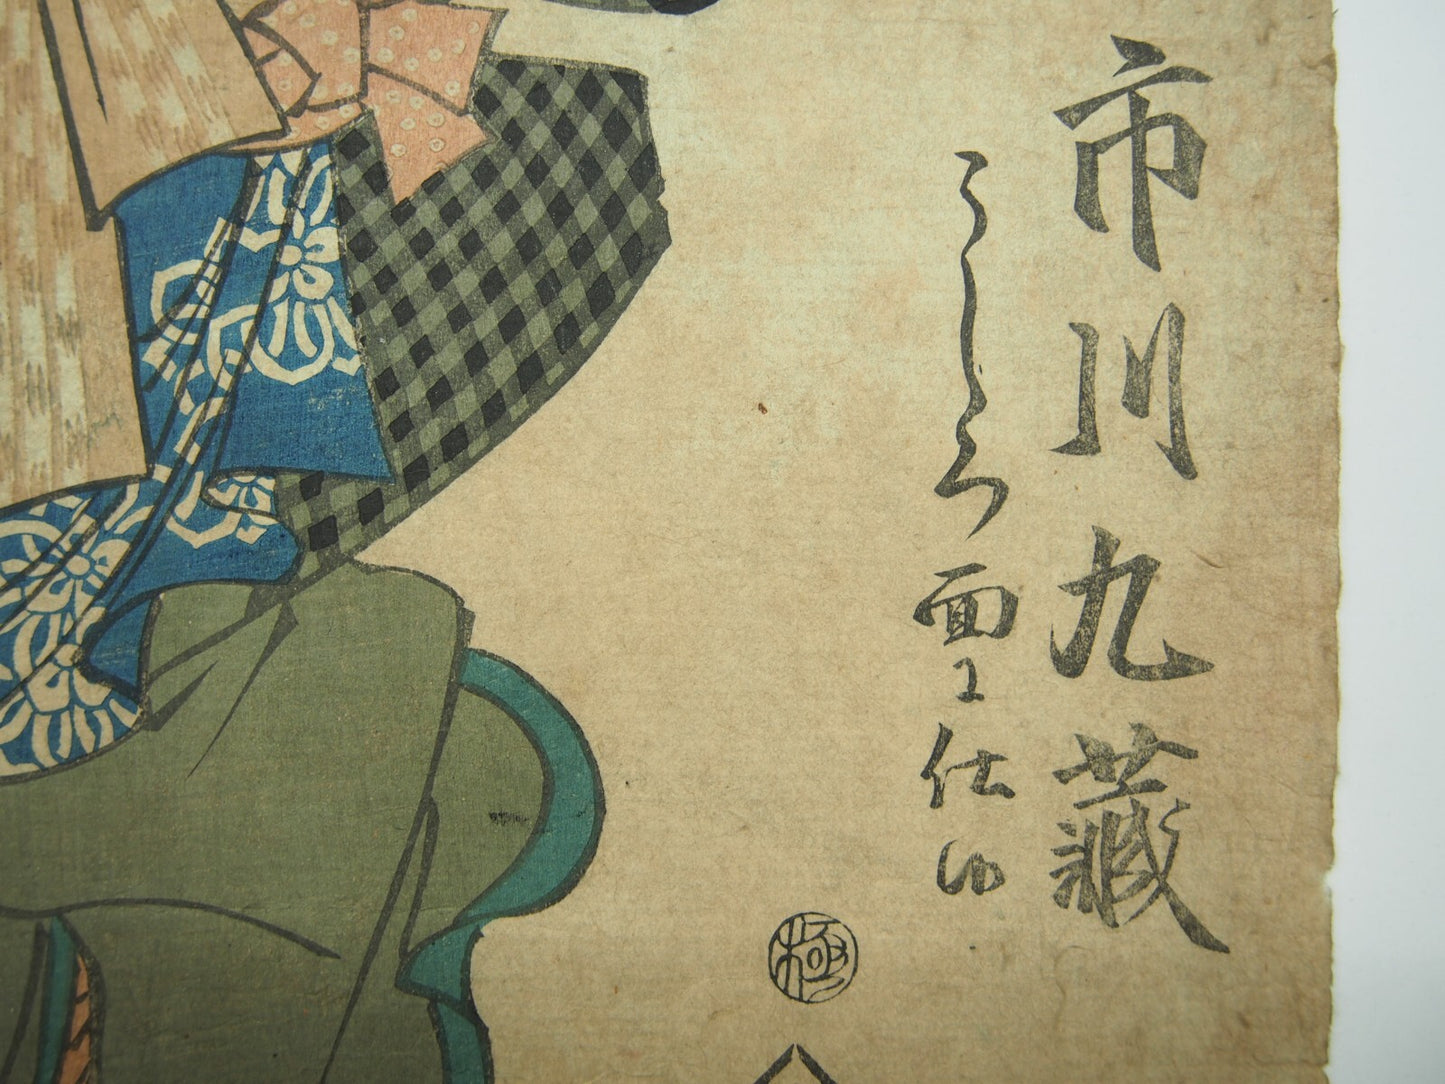 市川九蔵
うしろ面ニ仕候
極